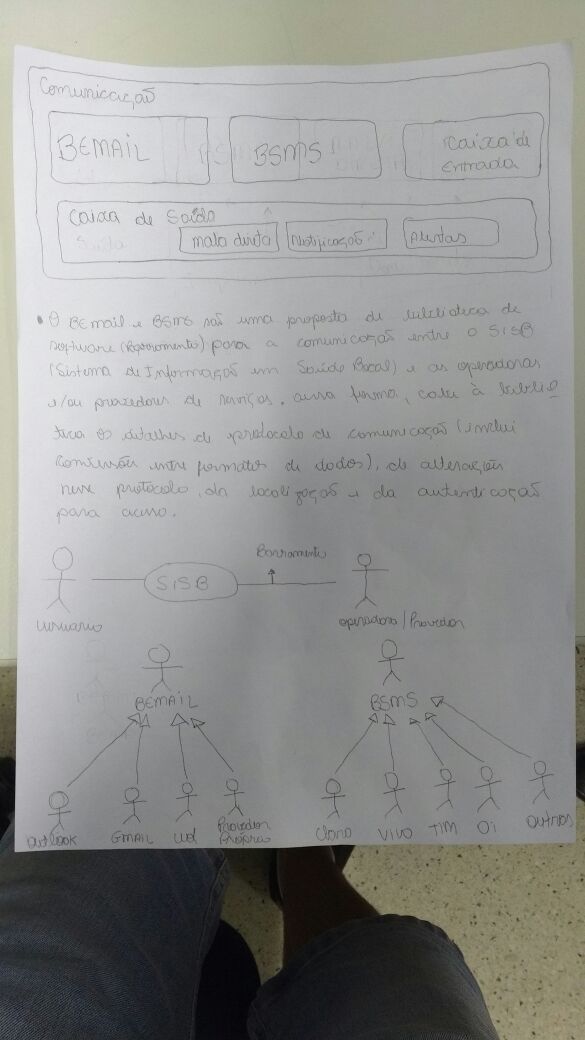 Comunicação
BEMAIL
BSMS
Caixa de
Entrada
Caixa de Saída
mala direta
Notificação
Alertas
• O BEmail e BSMS são uma proposta de biblioteca de
software (Barramento) para a comunicação entre o SISB
(Sistema de Informação em Saúde Bucal) e as operadoras
e/ou provedores de serviços. forma, cabe à biblio
teca os detalhes de protocolo de comunicação (inclui
conversão entre formatos de dados), de alterações
nesse protocolo, da localização e da autenticação
para acesso.
Barramento
SISB
usuario
operadora/Provedor
BEMAIL
BSMS
outlook
GMAIL
uol
Provedor
Próprio
Claro
VIVO
TIM
Oi
outros